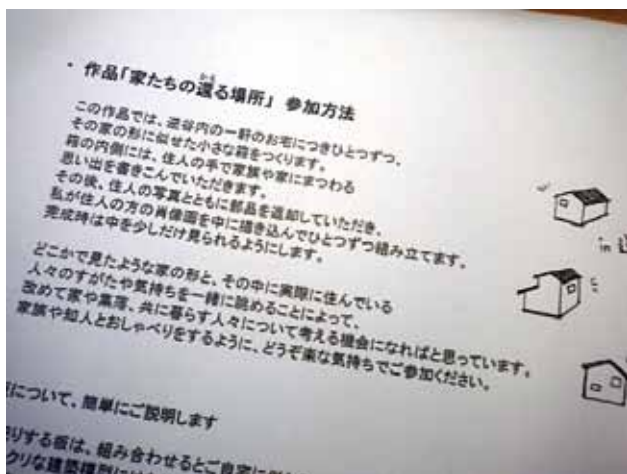 ・作品「家たちの還る場所」 参加方法
この作品では、逆谷内の一軒のお宅につきひとつずつ、
その家の形に似せた小さな箱をつくります。
箱の内側には、住人の手で家族や家にまつわる
思い出を書きこんでいただきます。
その後、住人の写真とともに部品を返却していただき、
私が住人の方の肖像画を中に描き込んでひとつずつ組み立てます。
完成時は中を少しだけ見られるようにします。
どこかで見たような家の形と、その中に実際に住んでいる
人々のすがたや気持ちを一緒に眺めることによって、
改めて家や集落、共に暮らす人々について考える機会になればと思っています。
家族や知人とおしゃべりをするように、どうぞ楽な気持ちでご参加ください。
について、簡単にご説明します
りする板は、組み合わせるとご自宅に
クリな建築模型に
in